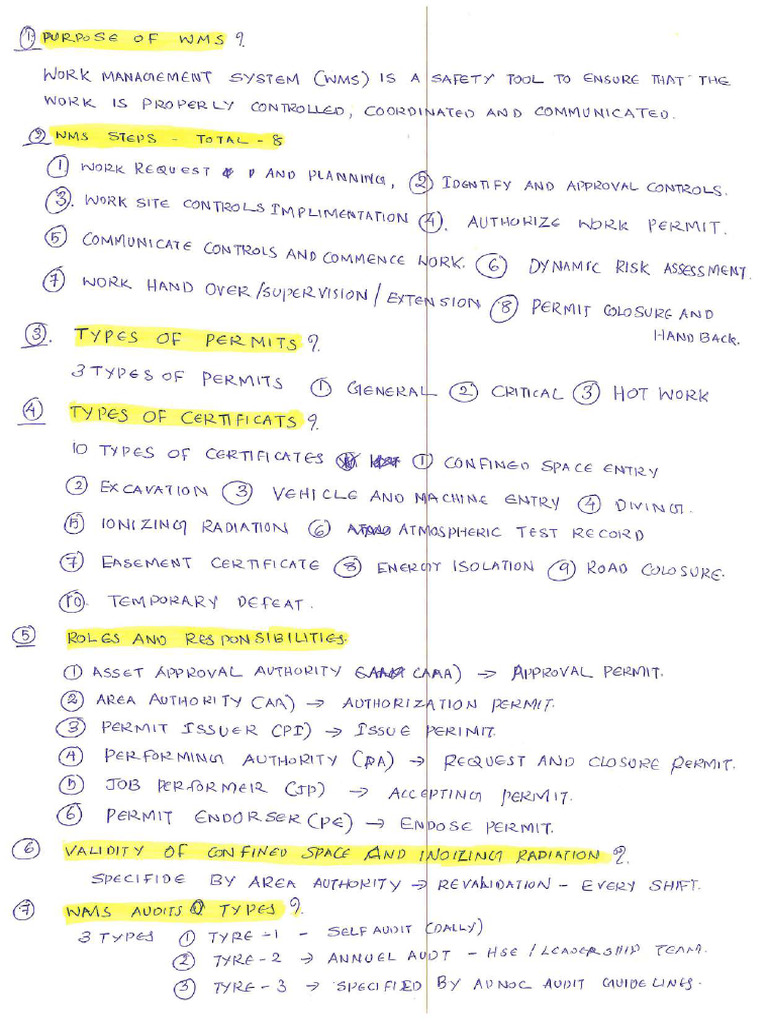 ① PURPOSE OF WMS ?
WORK MANAGEMENT SYSTEM (WMS) IS A SAFETY TOOL TO ENSURE THAT THE
WORK IS PROPERLY CONTROLLED, COORDINATED AND COMMUNICATED.
② WMS STEPS - TOTAL - 8
① WORK REQUEST AND PLANNING, ② IDENTIFY AND APPROVAL CONTROLS.
③. WORK SITE CONTROLS IMPLIMENTATION ④. AUTHORIZE WORK PERMIT.
⑤ COMMUNICATE CONTROLS AND COMMENCE WORK. ⑥ DYNAMIC RISK ASSESSMENT.
⑦ WORK HAND OVER/SUPERVISION/EXTENSION ⑧ PERMIT COLOSURE AND
HAND BACK.
③. TYPES OF PERMITS ?
3 TYPES OF PERMITS ① GENERAL ② CRITICAL ③ HOT WORK
④ TYPES OF CERTIFICATS ?
10 TYPES OF CERTIFICATES ① CONFINED SPACE ENTRY
② EXCAVATION ③ VEHICLE AND MACHINE ENTRY ④ DIVING.
⑤ IONIZING RADIATION ⑥ ATMOSPHERIC TEST RECORD
⑦ EASEMENT CERTIFICATE ⑧ ENERGY ISOLATION ⑨ ROAD COLOSURE.
⑩. TEMPORARY DEFEAT.
⑤ ROLES AND RESPONSIBILITIES.
① ASSET APPROVAL AUTHORITY (AAA) → APPROVAL PERMIT.
② AREA AUTHORITY (AA) → AUTHORIZATION PERMIT.
③ PERMIT ISSUER (PI) → ISSUE PERIMIT.
④ PERFORMING AUTHORITY (PA) → REQUEST AND CLOSURE PERMIT.
⑤ JOB PERFORMER (JP) → ACCEPTING PERMIT.
⑥ PERMIT ENDORSER (PE) → ENDOSE PERMIT.
⑥ VALIDITY OF CONFINED SPACE AND INOIZING RADIATION ?
SPECIFIDE BY AREA AUTHORITY → REVALIDATION - EVERY SHIFT.
⑦ WMS AUDITS TYPES ?
3 TYPES ① TYRE - 1 - SELF AUDIT (DAILY)
② TYRE - 2 → ANNUEL AUDT - HSE / LEADERSHIP TEAM.
③ TYRE - 3 → SPECIFIED BY ADNOC AUDIT GUIDELINES.